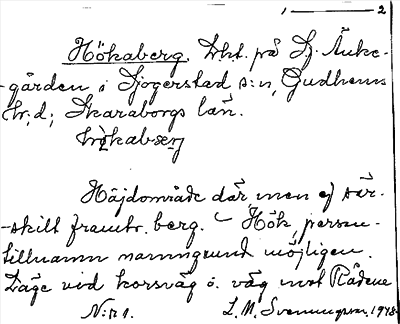 1 — 2
Hökaberg. Lht. på Lj. Änke-
-gården i Sjogerstad s:n, Gudhems
hr; d; Skaraborgs län.
Höjdområde där, men ej sär-
-skilt framtr. berg. Hök, person-
tillnamn namngrund möjligen.
Läge vid korsväg ö. väg mot Rådene
N:r 1. L. M. Svenungson. 1948.